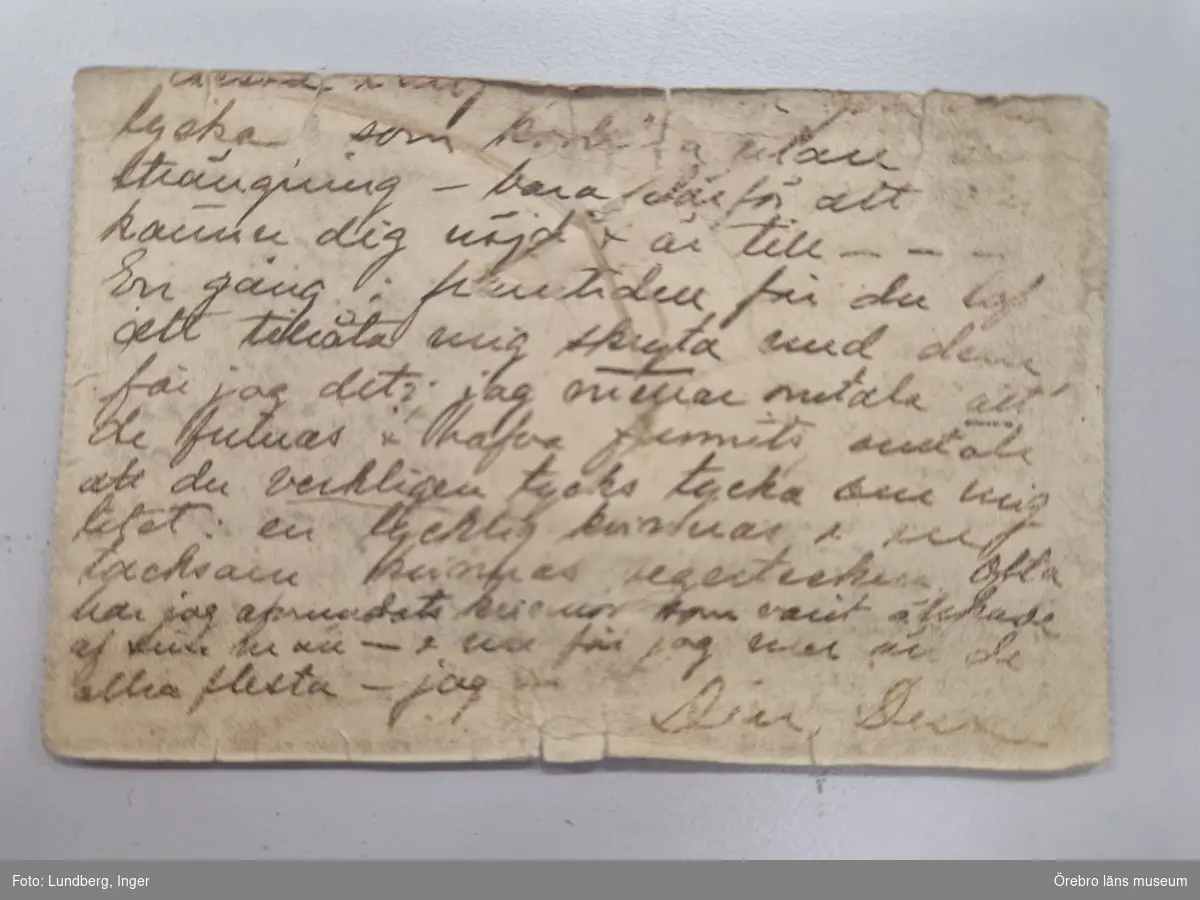 lycka som utan
strängning – bara därför att
känner dig nöjd & är till – – –
En gång i framtiden får du lof
att tillåta mig skryta med dem
får jag det? jag menar omtala att
de finnas & hafva funnits omtala
att du verkligen tycks tycka om mig
litet: en lycklig kvinnas &
tacksam kvinnas segertecken Ofta
har jag afundats kvinnor som varit älskade
af sin man – & nu får jag mer än de
allra flesta – jag –
Din, Din
Foto: Lundberg, Inger
Örebro läns museum